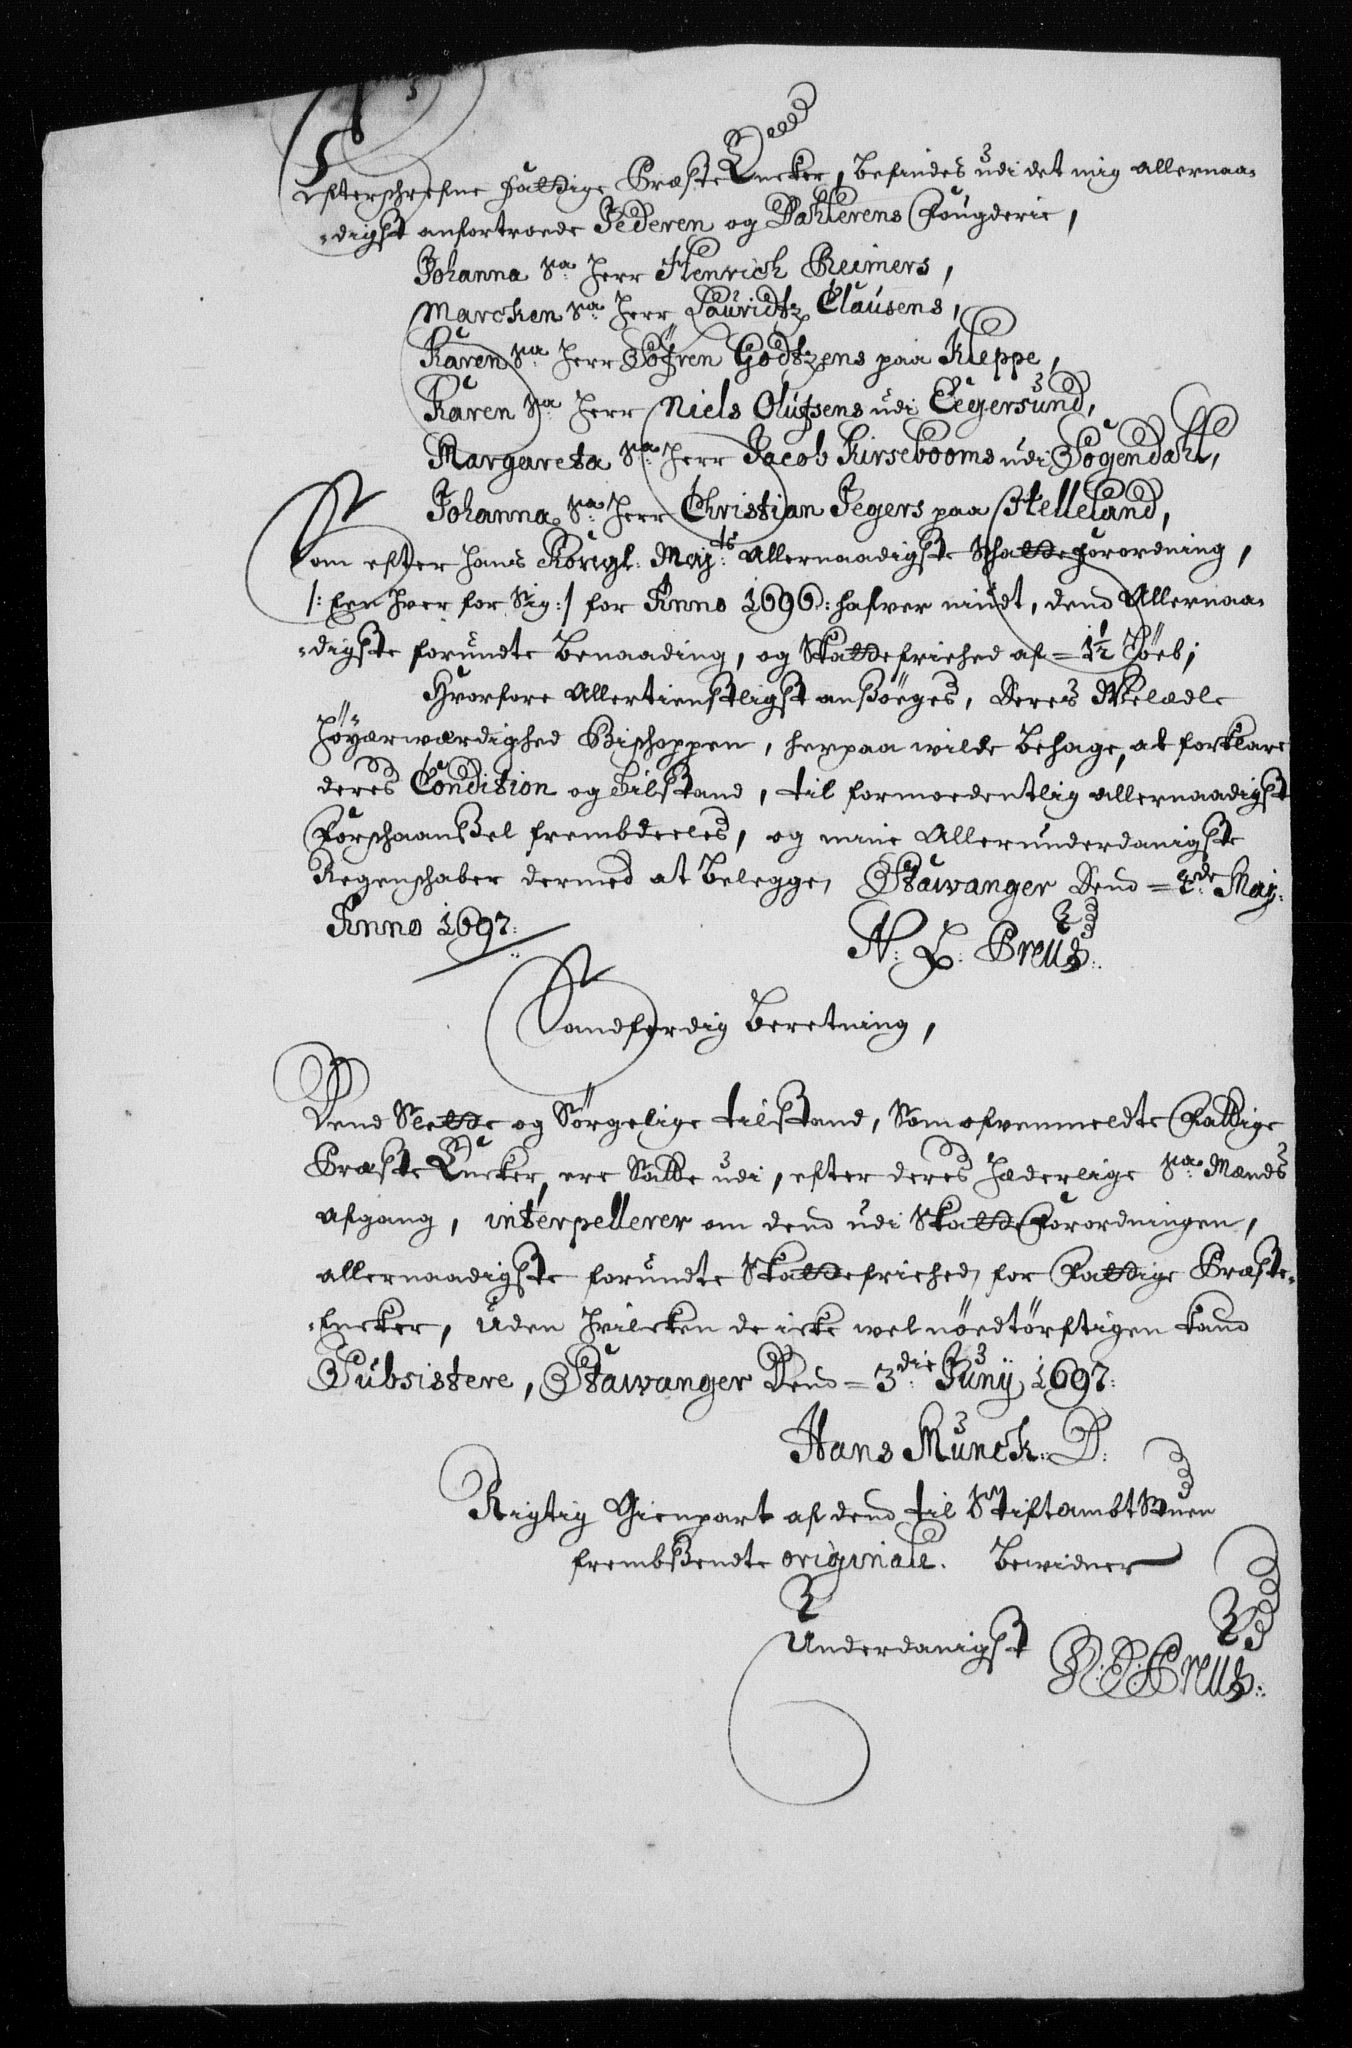 Efterschrefne Fattige PræsteEncker, befindes udi det mig allernaa-
digst anfortroede Jederen og Dahlerens Fougderie,
Johanna Sa: Herr Henrich Reimers,
Marchen Sa: Herr Lauridtz Clausens,
Karen Sa: Herr Söfren Godtzens paa Kleppe,
Karen Sa: Herr Niels Olufsens udi Eegersund,
Margareta Sa: Herr Jacob Kirsebooms udi Sogendahl,
Johanna Sa: Herr Christian Jegers paa Helleland,
Som efter Hans Kongl: Maj:ts Allernaadigste Schatteforordning,
/: Een hver for Sig :/ for Anno 1696: hafver nudt, dend Allernaa-
digste forundte Benaading, og Skattefriehed af = 1½ Söeb;
Hvorfore Allertienstligst ansöeges, Deres Welædle
Höyærwærdighed Bischoppen, herpaa wilde behage, at forklare
deres Condition og Tilstand, til formoedentlig allernaadigst
Forschaanßel frembdeeles, og mine Allerunderdanigste
Regenschaber dermed at belegge, Stawanger Dend = 2de Maij:
Anno 1697:
N: L: Preus:
Sandferdig Beretning,
Dend Slette og Sörgelige tilstand, Som ofvenmeldte Fattige
Præste Encker, ere Satte udi, efter deres Hæderlige Sa: Mænds
afgang, interpellerer om dend udi Skatteforordningen,
allernaadigste forundte Skattefriehed for Fattige Præste-
Encker, uden hvilcken de icke wel nöedtörftigen kand
Subsistere, Stawanger Dend = 3die Junij 1697:
Hans Munck: D:
Rigtig Gienpart af dend til Stiftambtstuen
frembsendte originale. Bewidner
Underdanigst N: L: Preus: